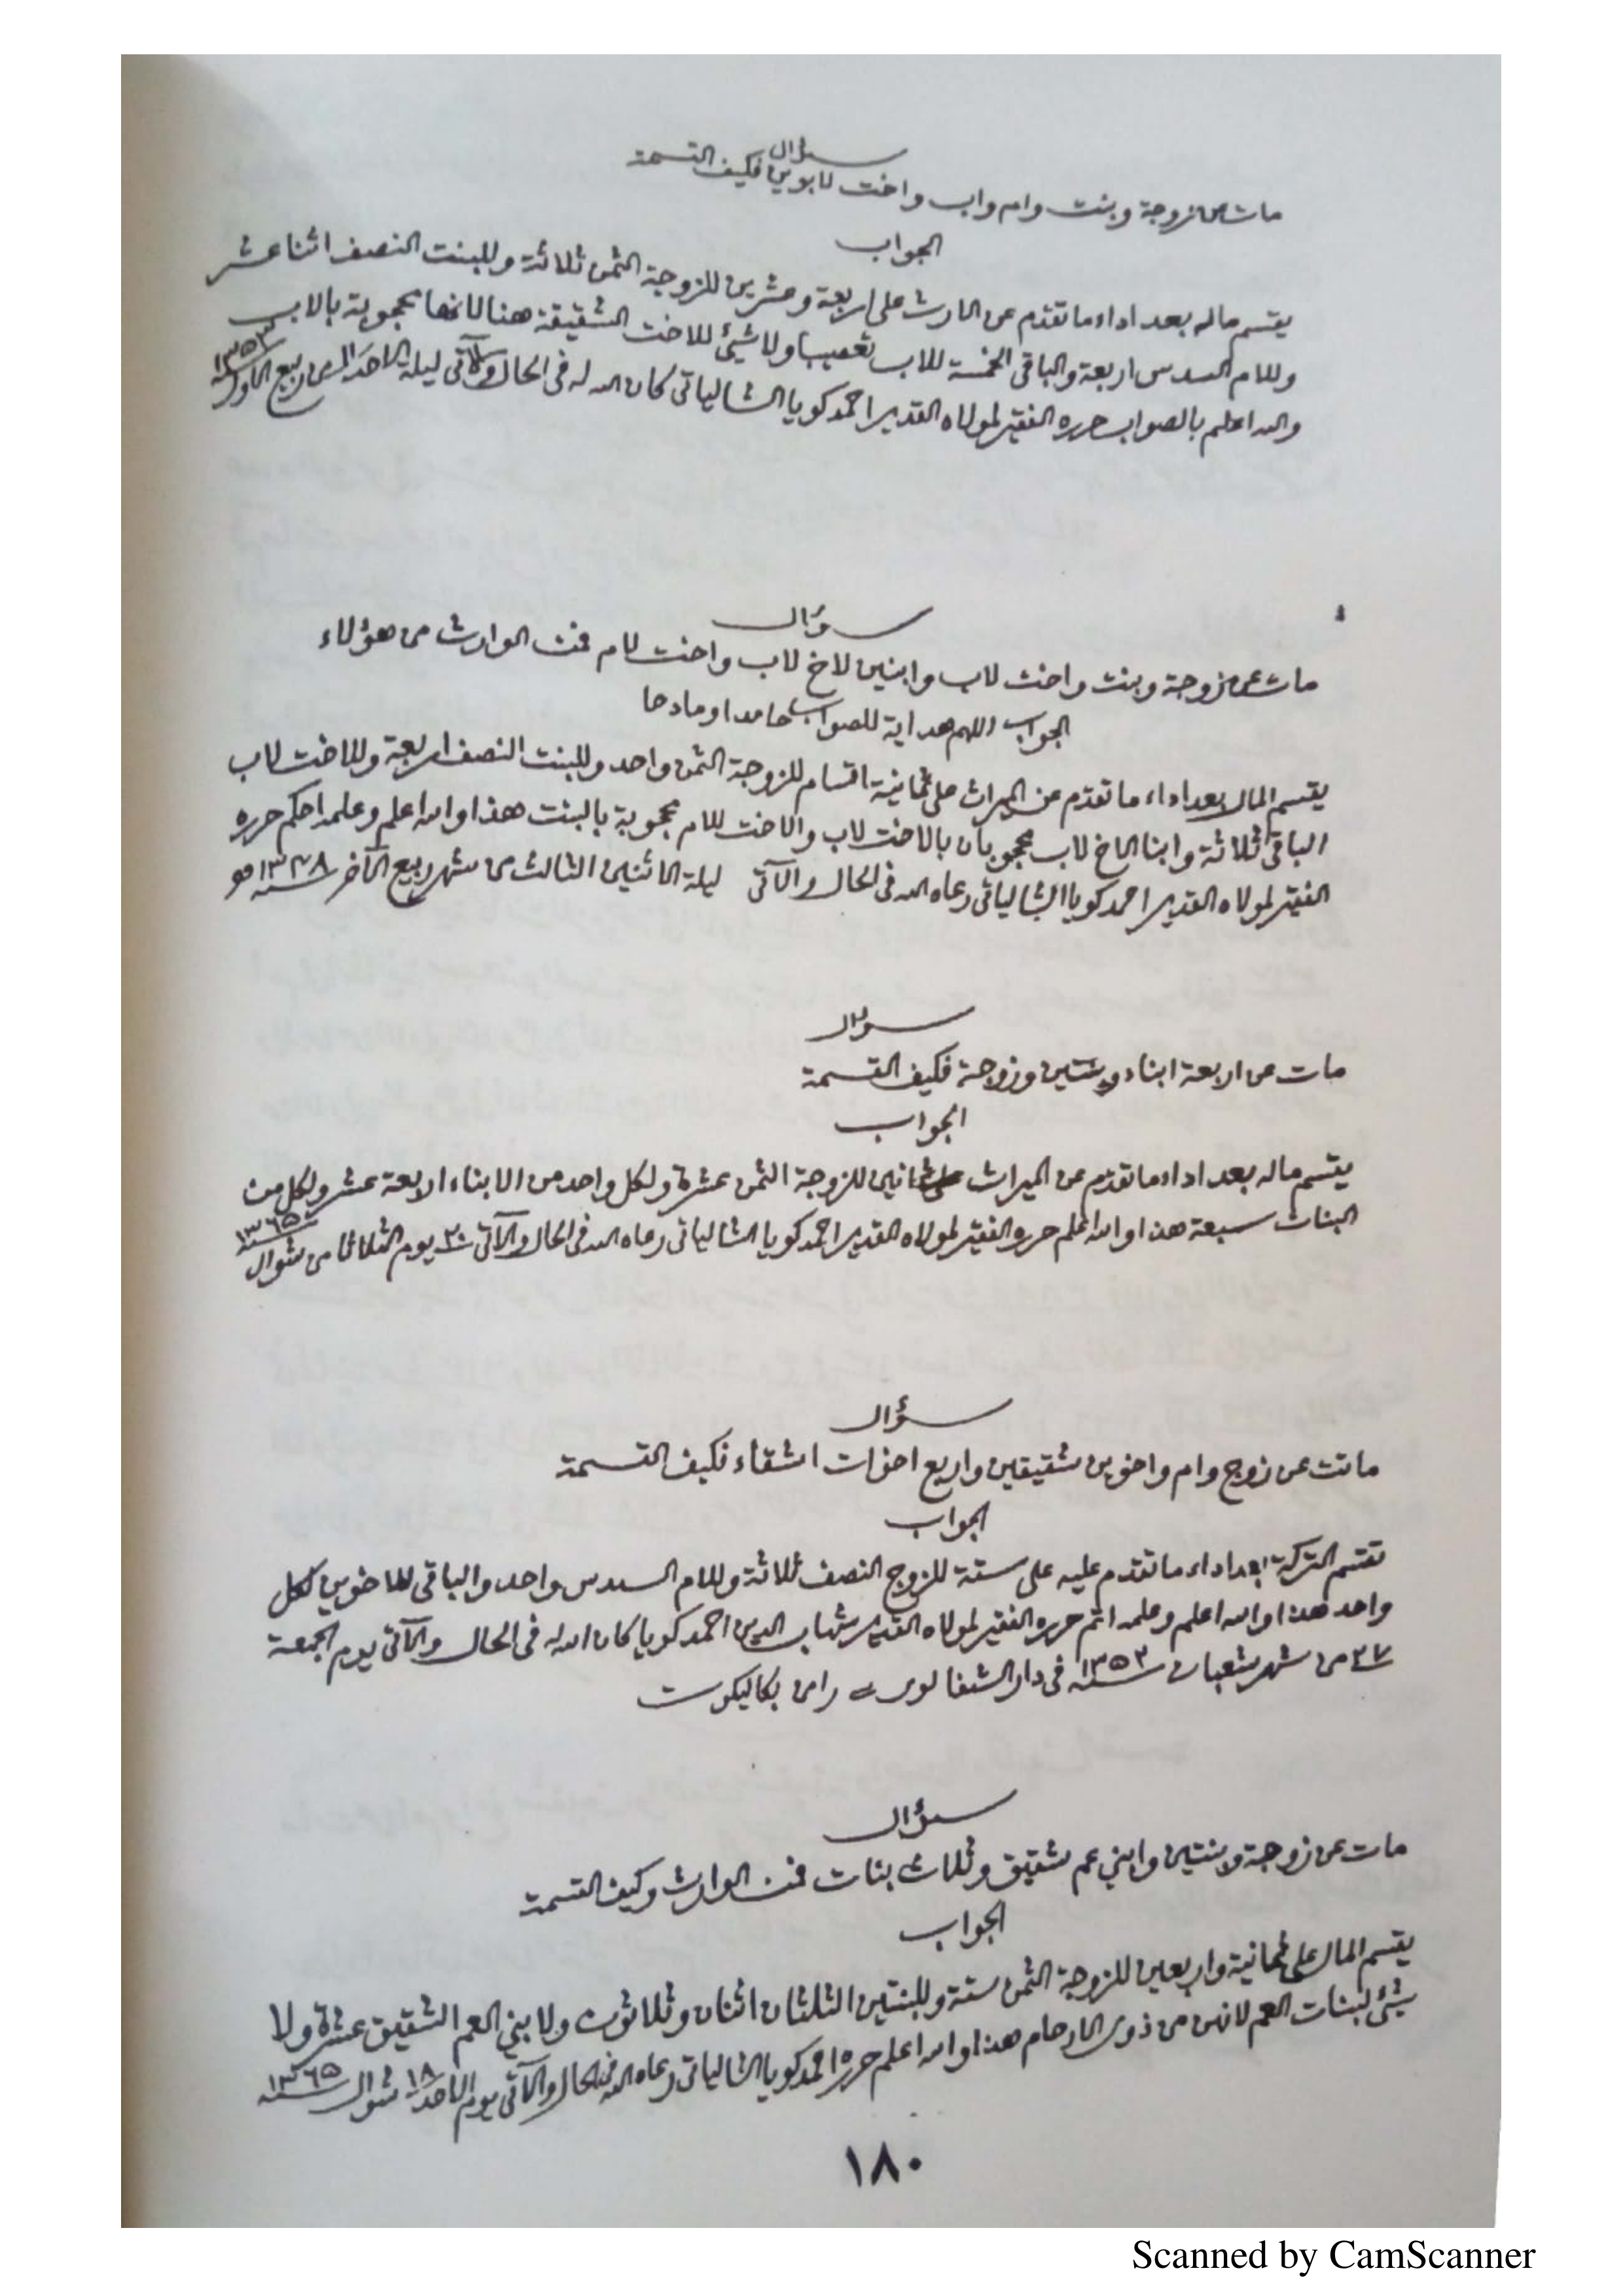 سؤال
مات عن زوجة وبنت وام واب واخت لابوين فكيف القسمة
الجواب
يقسم ماله بعد اداء ما تقدم عن الارث على اربعة وعشرين للزوجة الثمن ثلاثة وللبنت النصف اثنا عشر
وللام السدس اربعة والباقي الخمسة للاب تعصيبا ولا شيئ للاخت الشقيقة هنا لانها محجوبة بالاب
والله اعلم بالصواب حرره الفقير لمولاه القدير احمد كويا الشالياتي كان الله له في الحال والآتي ليلة الاحد من ربيع الاول
سنة ١٣٥٣
سؤال
مات عن زوجة وبنت واخت لاب وابنين لاخ لاب واخت لام فمن الوارث من هؤلاء
الجواب اللهم هداية للصواب حامدا ومادحا
يقسم المال بعد اداء ما تقدم عن الميراث على ثمانية اقسام للزوجة الثمن واحد وللبنت النصف اربعة وللاخت لاب
الباقي ثلاثة وابنا الاخ لاب محجوبان بالاخت لاب والاخت للام محجوبة بالبنت هذا والله اعلم وعلمه احكم حرره
الفقير لمولاه القدير احمد كويا الشالياتي رعاه الله في الحال والآتي ليلة الاثنين الثالث من شهر ربيع الآخر سنة ١٣٤٨
سؤال
مات عن اربعة ابناء وبنتين وزوجة فكيف القسمة
الجواب
يقسم ماله بعد اداء ما تقدم عن الميراث على ثمانين للزوجة الثمن عشرة ولكل واحد من الابناء الاربعة عشر ولكل من
البنات سبعة هذا والله اعلم حرره الفقير لمولاه القدير احمد كويا الشالياتي رعاه الله في الحال والآتي ٢٠ يوم الثلاثا من شوال
سنة ١٣٦٥
سؤال
ماتت عن زوج وام واخوين شقيقين واربع اخوات اشقاء فكيف القسمة
الجواب
تقسم التركة بعد اداء ما تقدم عليه على ستة للزوج النصف ثلاثة وللام السدس واحد والباقي للاخوين لكل
واحد هذا والله اعلم وعلمه اتم حرره الفقير لمولاه القدير شهاب الدين احمد كويا كان الله له في الحال والآتي يوم الجمعة
٢٧ من شهر شعبان سنة ١٣٥٣ في دار الشفا بكاليكوت
سؤال
مات عن زوجة وبنتين وابني عم شقيق وثلاث بنات فمن الوارث وكيف القسمة
الجواب
يقسم المال على ثمانية واربعين للزوجة الثمن ستة وللبنتين الثلثان اثنان وثلاثون ولابني العم الشقيق عشرة ولا
شيئ لبنات العم لانهن من ذوى الارحام هذا والله اعلم حرره احمد كويا الشالياتي رعاه الله في الحال والآتي يوم الاحد ١٨ شوال سنة ١٣٦٥
١٨٠
Scanned by CamScanner